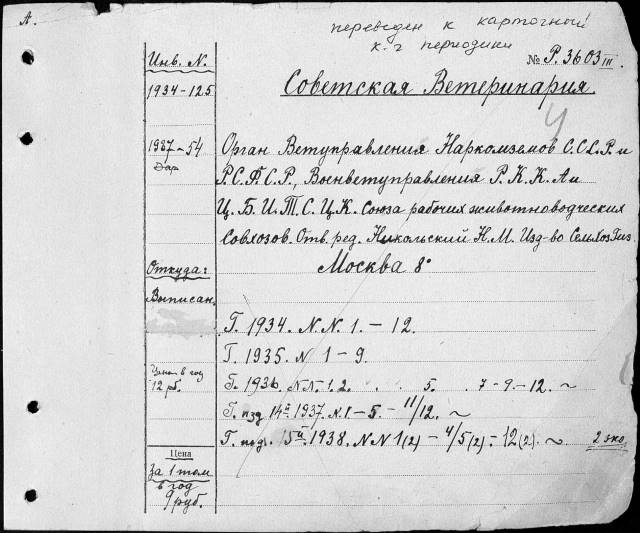 А.
переведен к карточкый
к-г периодики
№ Р. 3603 III
Советская Ветеринария
Инв. N.
1934-125
1937-54
Дар
Орган Ветуправления Наркомземов С.С.С.Р. и
Р.С.Ф.С.Р., Военветуправления Р.К.К.А и
Ц.Б.И.Т.С. Ц.К. Союза рабочих животноводческих
Совхозов. Отв. ред. Никольский Н.М. Изд-во СельхозГиз.
Москва 8°
Откуда:
Выписан.
Г. 1934. N.N. 1. – 12.
Г. 1935. N 1 – 9.
Цена в год
12 рб.
Г. 1936. N.N. 1. 2. . . 5. . 7 – 9. – 12. ~
Г. изд 14й 1937. N. 1. – 5. – 11/12. ~
Г. изд. 15й 1938. N N 1(2) – 4/5(2) – 12(2). ~ 2 экз.
Цена
За 1 том
в год
9 руб.